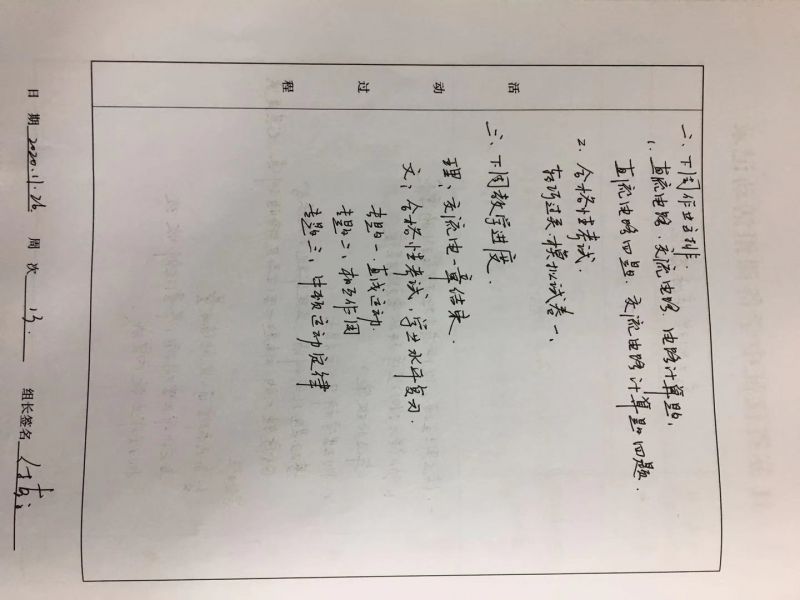 活动过程
一、下周作业安排.
1. 直流电路、交流电路、电路计算题,
直流电路四题、交流电路计算题四题.
2. 合格性考试.
技巧过关、模拟试卷一、
二、下周教学进度.
理:交流电一章结束.
文:合格性考试,学业水平复习.
专题一、直线运动.
专题二、相互作用
专题三、牛顿运动定律
日期 2020.11.26 周次 13. 组长签名